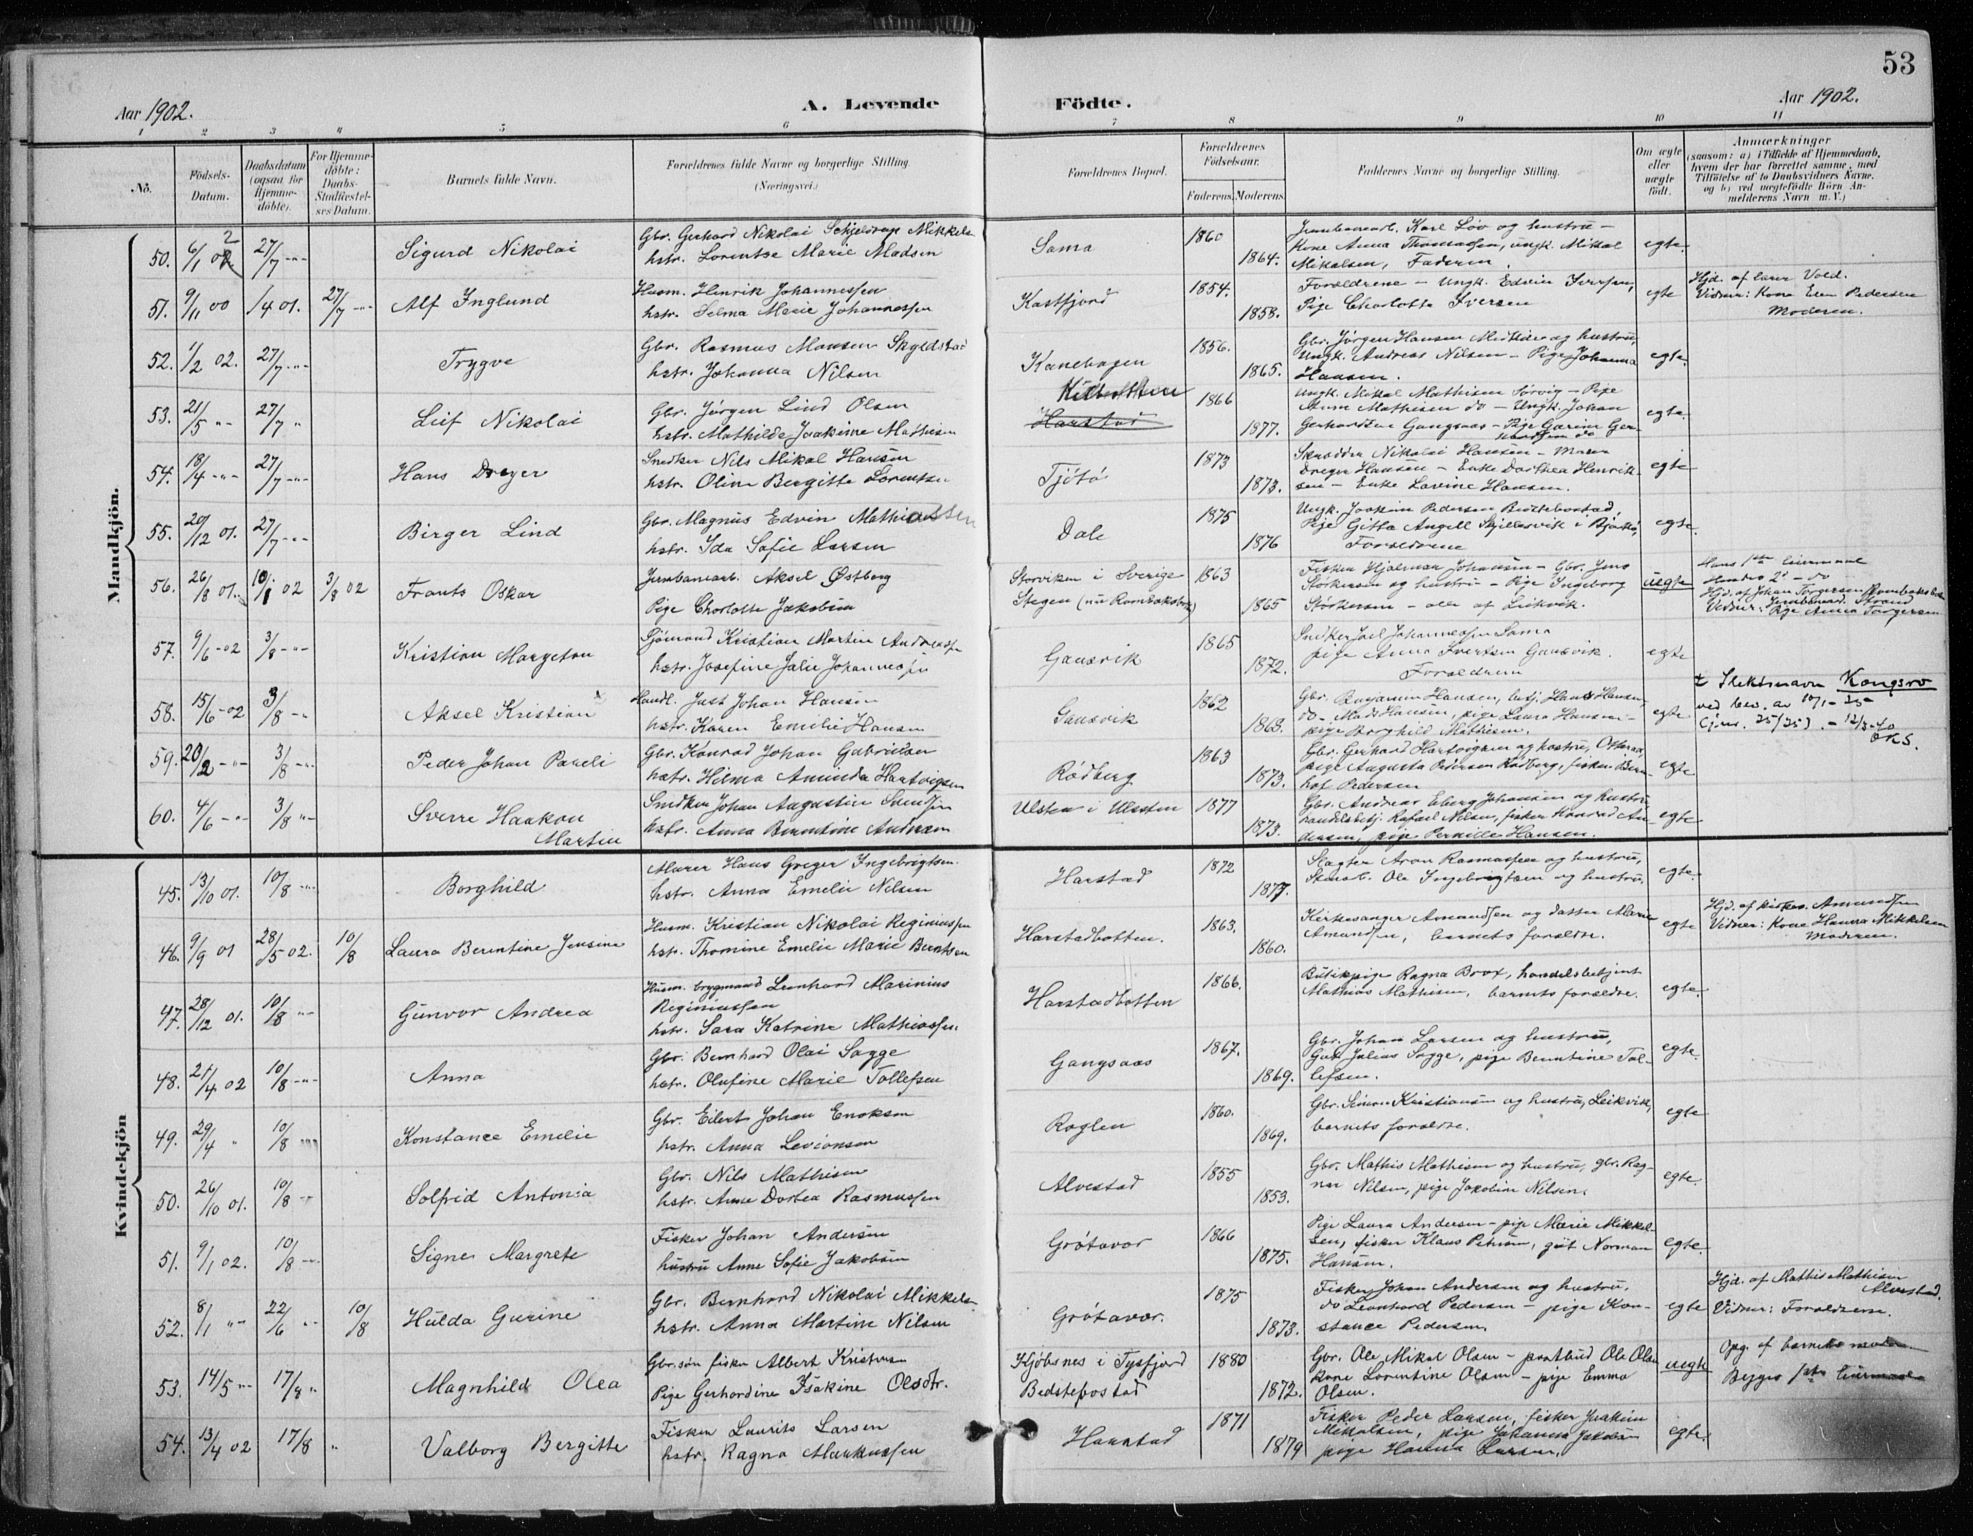 53
Aar 1902.
A. Levende Födte.
Aar 1902.
1 2 3 4 5 6 7 8 9 10 11
No.
Födsels-Datum.
Daabsdatum (ogsaa for Hjemme-döbte).
For Hjemme-döbte: Daabs-Stadfæstel-ses Datum.
Barnets fulde Navn.
Forældrenes fulde Navne og borgerlige Stilling (Næringsvei.)
Forældrenes Bopæl.
Forældrenes Födselsaar.
Faderens. Moderens.
Faddernes Navne og borgerlige Stilling.
Om ægte eller uægte födt.
Anmærkninger
(saasom: a) i Tilfælde af Hjemmedaab,
hvem der har forrettet samme, med
Tilföielse af to Daabsvidners Navne,
og b) ved uægtefödte Börn An-
melderens Navn m. V.)
Mandkjön.
50. 6/1 02 27/7 -"- Sigurd Nikolai
Gbr. Gerhard Nikolai Schjeldrup Mikkels
hstr. Lorentse Marie Madsen
Sama 1860 1864.
Jernbanearb. Karl Löv og hustru -
Kone Anna Thomassen, ungk. Mikal
Mikalsen, Faderen.
egte.
51. 9/11 00 /4 01. 27/7 -"- Alf Inglund
Husm. Henrik Johannessen
hstr. Selma Marie Johannessen
Kastfjord 1854. 1858.
Forældrene - Ungk. Edvin Iversen,
Pige Charlotte Iversen
egte
Hjd. af lærer Vold.
Vidner: Kone Elen Pedersen
Moderen.
52. 1/2 02. 27/7 -"- Trygve
Gbr. Rasmus Monsen Skyldstad
hstr. Johanna Nilsen
Kanebogen 1856. 1865.
Gbr. Jörgen Hansen og hustru,
Ungk. Andreas Nilsen - Pige Johanna
Hansen.
egte.
53. 21/5 -"- 27/7 " Leif Nikolai
Gbr. Jörgen Lind Olsen
hstr. Mathilde Joakime Mathisen
Kilbotten
Harstad
1866 1877.
Ungk. Mikal Mathisen Sörvig - Pige
Mathisen do - Ungk. Johan
Gerhardsen Gangsaas - Pige
egte.
54. 18/4 -"- 27/7 -"- Hans Dreyer
Snedker Nils Mikal Hansen
hstr. Oline Bergitte Lorentsen
Tjötö 1873 1873.
Skrædder Nikolai Hansen - Maren
Dreyer Hansen - Enke Dorthea Henrik-
sen - Enke Lavine Hansen.
egte
55. 20/12 01. 27/7 -"- Birger Lind
Gbr. Magnus Edvin Mathiassen
hstr. Ida Sofie Larsen
Dale 1875 1876
Ungk. Joakim Pedersen
Pige Gitta Angell i Bjarkö,
Forældrene
egte
56. 26/8 01. 10/1 02 3/8 02 Frants Oskar
Jernbanearb. Aksel Östberg
Pige Charlotte Jakobsen
Storviken i Sverige
Stegen (nu Rombaksbotn)
1863 1865
Fisker Hjalmar Johansen - Gbr. Jens
Störkersen og hustru - Pige Ingeborg
Störkersen - alle af Leikvik.
uegte
Hans 1ste leiermaal
Hendes 2' - do
Hjd. af Johan Torgersen Rombaksbotn
Vidner: Jernbanearb. Strand
Pige Anna Torgersen
57. 9/6 -02 3/8 -"- Kristian Margeton
Sjömand Kristian Martin Andreassen
hstr. Josefine Julie Johannessen
Gansvik 1865 1872.
Snedker Joel Johannessen Sama
pige Anna Ivertsen Gansvik.
Forældrene
egte
58. 15/6 -02 3/8 -" Aksel Kristian
Handl. Just Johan Hansen
hstr. Karen Emelie Hansen
Gansvik 1862 1863.
Gbr. Benjamin Hansen, betj. Hans Hansen,
do - Mads Hansen, pige Laura Hansen -
pige Borghild Mathisen.
egte
Slektsnavn Kongsro
ved bev. av 10/1 - 25 -
(jnr. 25/25) - 12/3-40
59. 20/2 -"- 3/8 -"- Peder Johan Pareli
Gbr. Konrad Johan Gabrielsen
hstr. Hilma Amunda Hartvigsen
Rödberg 1863 1873.
Gbr. Gerhard Hartvigsen og hustru,
pige Augusta Pedersen Rödberg, fisker Bern-
hof Pedersen
egte
60. 4/6 -"- 3/8 "- Sverre Haakon
Martin
Snedker Johan Augustin
hstr. Anna Berntine Andersen
Ulsten i Ulsten 1877 1873.
Gbr. Andreas Eberg Johansen og hustru
handelsbetj. Rafael Nilsen, fisker Konrad An-
dersen, pige Pernille Hansen.
egte
Kvindekjön
45. 13/10 01. 10/8 -"- Borghild
Murer Hans Greger Ingebrigtsen.
hstr. Anna Emelie Nilsen
Harstad 1872 1877.
Slagter Aron Rasmussen og hustru,
Ole Ingebrigtsen og hustru.
egte.
46. 9/9 01 28/5 02. 10/8 Laura Berntine Jensine
Husm. Kristian Nikolai Reginiussen
hstr. Thomine Emelie Marie Berntsen
Harstadbotten. 1863. 1860.
Kirkesanger Amundsen og datter Marie
Amundsen, barnets forældre.
egte
Hjd. af kirkes. Amundsen
Vidner: Kone Hanna Mikkelsen
Moderen.
47. 28/12 01. 10/8 -"- Gunvor Andrea
Husm. brygmand Leonhard Marinius
Reginiussen
hstr. Sara Katrine Mathiassen.
Harstadbotten 1866.
Butikpige Ragna Brox, handelsbetjent
Mathias Mathisen, barnets forældre.
egte.
48. 21/4 02 10/8 -"- Anna
Gbr. Bernhard Olai Sagge
hstr. Olufine Marie Tollefsen
Gangsaas 1867. 1869.
Gbr. Johan Larsen og hustru,
Gut Julius Sagge, pige Berntine Tol-
lefsen.
egte.
49. 29/4 " 10/8 Konstance Emelie
Gbr. Eilert Johan Enoksen
hstr. Anna Levionsen
Roglen 1860. 1869.
Gbr. Simon Kristiansen og hustru, Leikvik,
barnets forældre.
egte
50. 26/10 01. 10/8 -"- Solfrid Antonia
Gbr. Nils Mathisen
hstr. Anne Dortea Rasmussen
Alvestad 1855 1853.
Gbr. Mathis Mathisen og hustru, gbr. Rag-
nar Nilsen, pige Jakobine Nilsen.
egte.
51. 9/1 02. 10/8 -"- Signe Margrete
Fisker Johan Andersen
hustru Anne Sofie Jakobsen
Grötavær 1866 1875.
Pige Laura Andersen - pige Marie Mikkel-
sen, fisker Klaus Petersen, gut Norman
Hansen.
egte.
52. 8/1 "- 22/6 "- 10/8 Hulda Gurine
Gbr. Bernhard Nikolai Mikkels-
hstr. Anna Martine Nilsen
Grötavær. 1875 1873.
Fisker Johan Andersen og hustru.
do Leonhard Pedersen - pige Kon-
stance Pedersen.
egte
Hjd. af Mathis Mathisen
Alvestad.
Vidner: Forældrene.
53. 14/5 -"- 17/8 " Magnhild Olea
Gbr.søn fisker Albert Kristensen
Pige Gerhardine Isakine Olsdtr.
Kjöbsnes i Tysfjord
Bedstefostad
1880 1872.
Gbr. Ole Mikal Olsen - postbud Ole Olsen
kone Lorentine Olsen - pige Emma
Olsen.
uegte
Opg. af barnets moder
Begges 1ste leiermaal
54. 13/4 02 17/8 " Valborg Bergitte
Fisker Laurits Larsen
hstr. Ragna Markussen
Harstad 1871 1879
Fisker Peder Larsen, fisker Joakim
Mikkalsen, pige Johanna Jakobsen
pige Hanna Larsen.
egte.